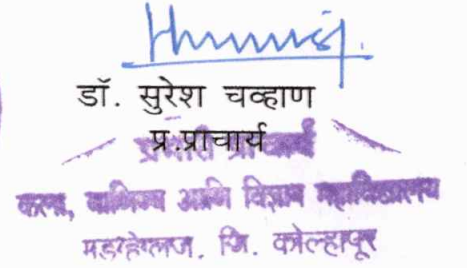 डॉ. सुरेश चव्हाण
प्र.प्राचार्य
प्रभारी प्राचार्य
कला, वाणिज्य आणि विज्ञान महाविद्यालय
जि. कोल्हापूर